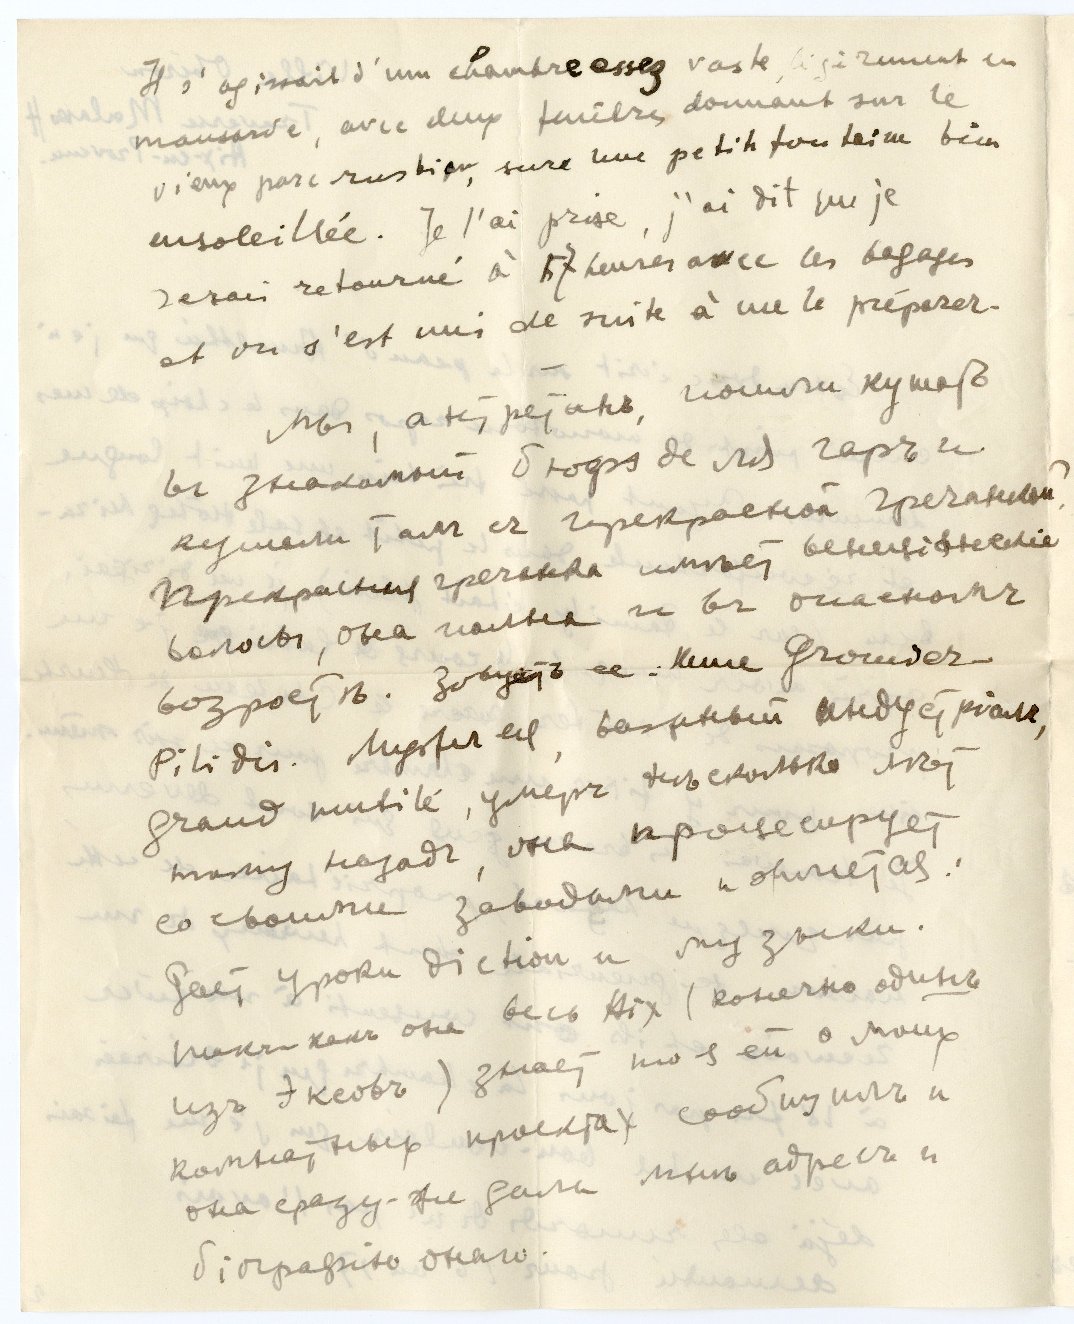 Il s'agissait d'une chambre assez vaste, légèrement en
mansarde, avec deux fenêtres donnant sur le
vieux parc rustique, sure une petite fontaine bien
ensoleillée. Je l'ai prise, j'ai dit que je
serais retourné à 17 heures avec les bagages
et on s'est mis de suite à me le préparer.
Мы, антретанъ, пошли кушать
въ знакомый бюфэ де ля гаръ и
кушали тамъ съ прекрасной гречанкой.
Прекрасная гречанка имѣетъ венеціанскіе
волосы, она полна и въ опасномъ
возрастѣ. Зовутъ ее
Pilidis. важный индустріалъ,
grand mutilé, умеръ нѣсколько лѣтъ
тому назадъ, она процесируетъ
со своими заводами и
Даетъ уроки diction и музыки.
Такъ какъ она весь Aix (конечно одинъ
изъ Эксовъ) знаетъ то я ей о моихъ
комнатныхъ проектах сообщилъ и
она сразу-же дала мнѣ адресъ и
біографію онаго.